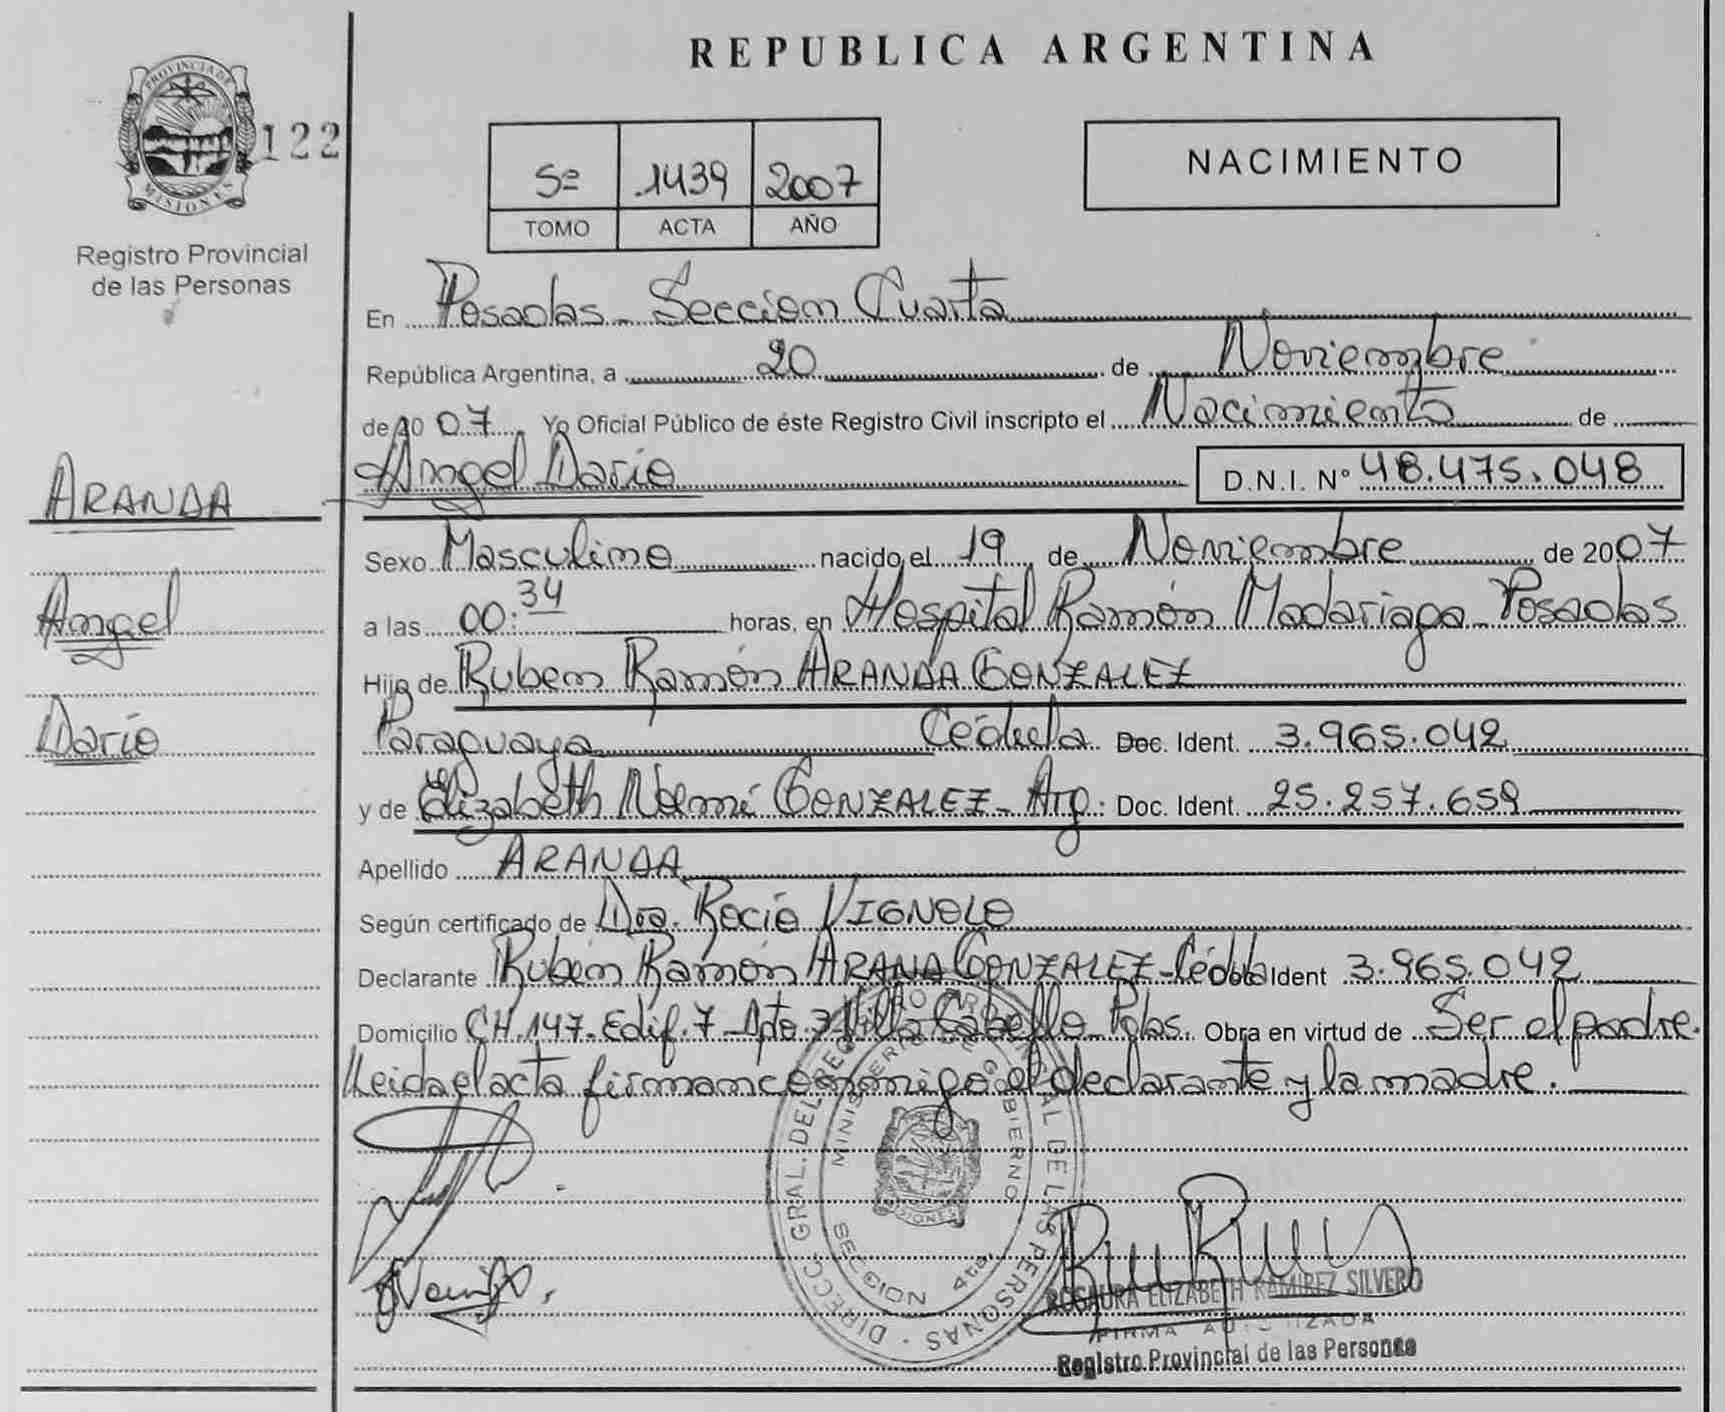 REPUBLICA ARGENTINA
PROVINCIA DE
MISIONES
122
Registro Provincial
de las Personas
5º 1439 2007
TOMO ACTA AÑO
NACIMIENTO
En Posadas - Sección Cuarta
República Argentina, a 20 de Noviembre
de 2007 Yo Oficial Público de éste Registro Civil inscripto el Nacimiento de
Angel Dario D.N.I. Nº 48.475.048
ARANDA
Angel
Dario
Sexo Masculino nacido el 19 de Noviembre de 2007
a las 00:34 horas, en Hospital Ramón Madariaga - Posadas
Hijo de Ruben Ramón ARANDA GONZALEZ
Paraguaya Cédula Doc. Ident. 3.965.042
y de Elizabeth Noemí GONZALEZ - Arg. Doc. Ident. 25.257.659
Apellido ARANDA
Según certificado de Dra. Rocío VIGNOLO
Declarante Rubén Ramón ARANA GONZALEZ - Cédula Ident 3.965.042
Domicilio CH.147- Edif.7 - Dpto.7 Villa Cabello - Pdas. Obra en virtud de Ser el padre.
Leida el acta firman conmigo el declarante y la madre.
DIRECC. GRAL. DEL REGISTRO PROVINCIAL DE LAS PERSONAS
MINISTERIO DE GOBIERNO
MISIONES
SECCION 4ta.
ROSAURA ELIZABETH RAMIREZ SILVERO
FIRMA AUTORIZADA
Registro Provincial de las Personas